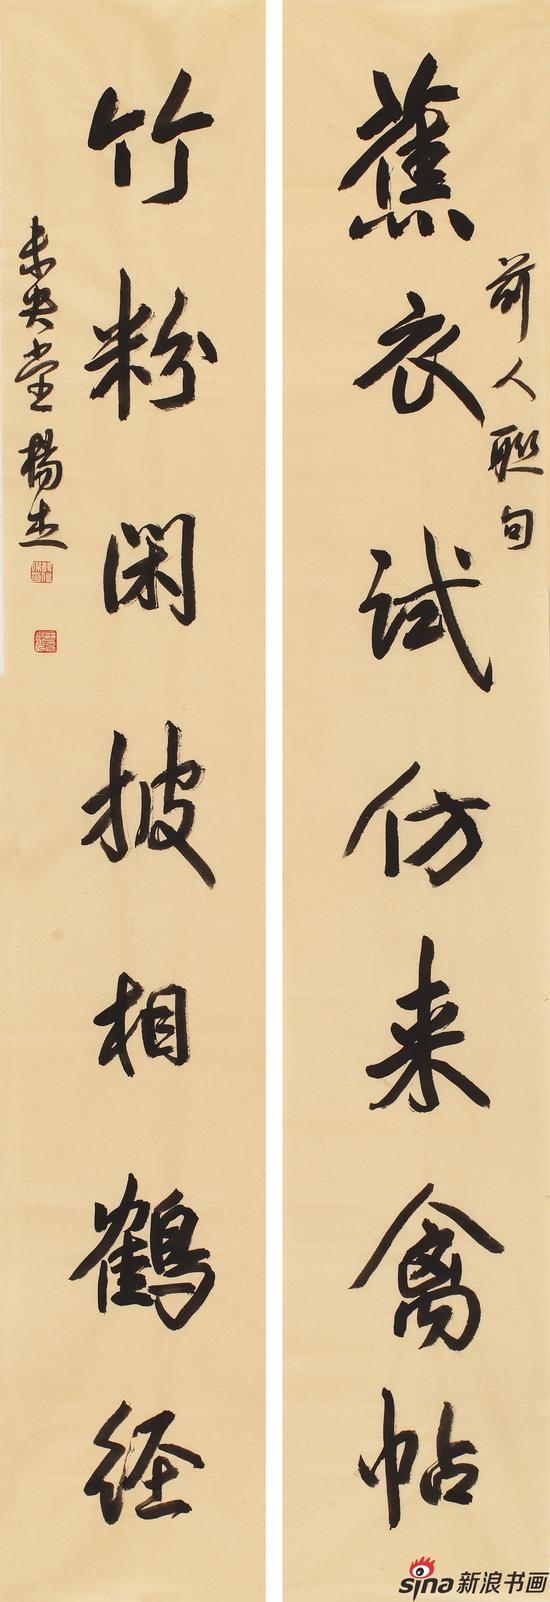 蕉衣试仿来禽帖
前人联句
竹粉闲披相鹤经
未央堂杨杰
sina新浪书画